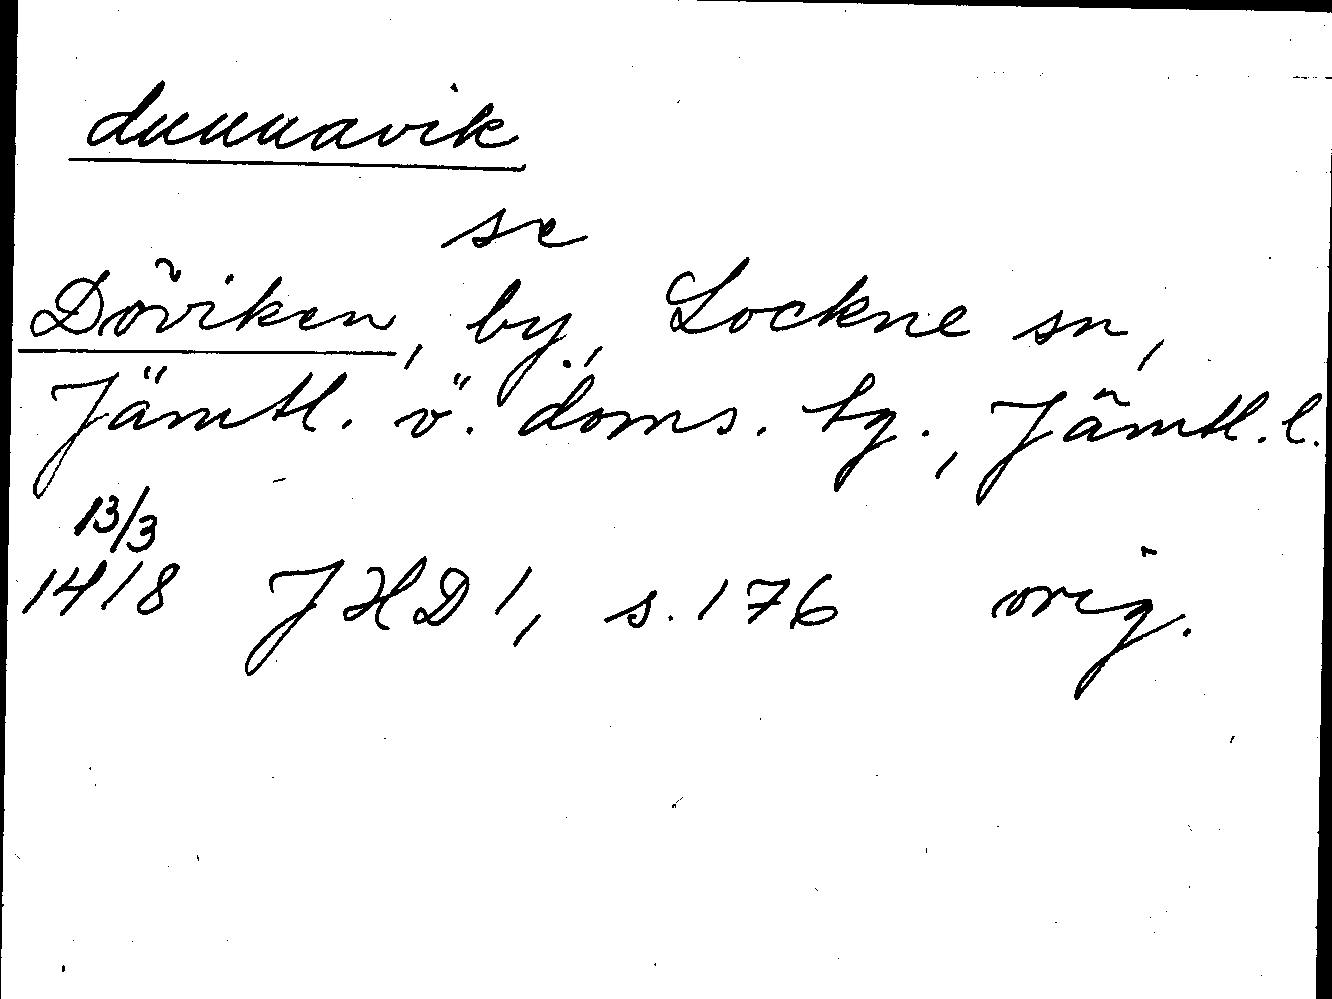 dunnavik
se
Döviken, by, Lockne sn,
Jämtl. v. doms. tg., Jämtl. l.
13/3
1418 JHD 1, s. 176 orig.